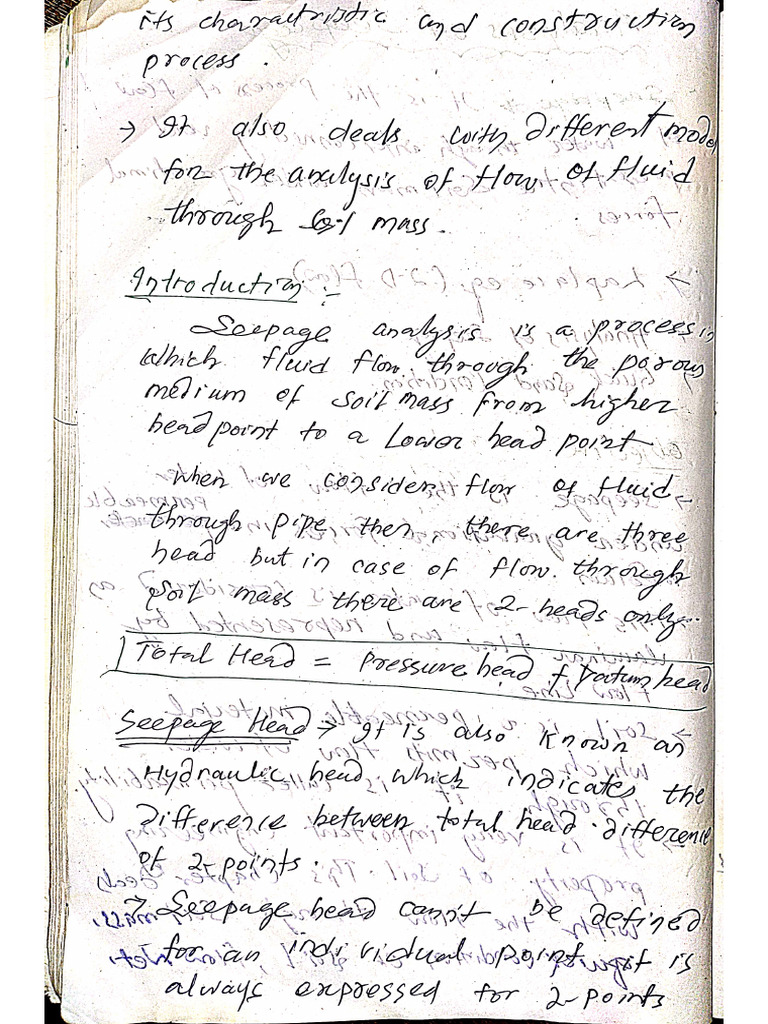 its characteristic and construction
process.
→ It also deals with different model
for the analysis of flow of fluid
through soil mass.
Introduction :-
Seepage analysis is a process in
which fluid flow through the porous
medium of soil mass from higher
head point to a lower head point
When we consider flow of fluid
through pipe then there are three
head but in case of flow through
soil mass there are 2-heads only.
Total Head = Pressure head + Datum head
Seepage Head → It is also known as
Hydraulic head which indicates the
difference between total head difference
of 2-points.
→ Seepage head can't be defined
for an individual point it is
always expressed for 2-points